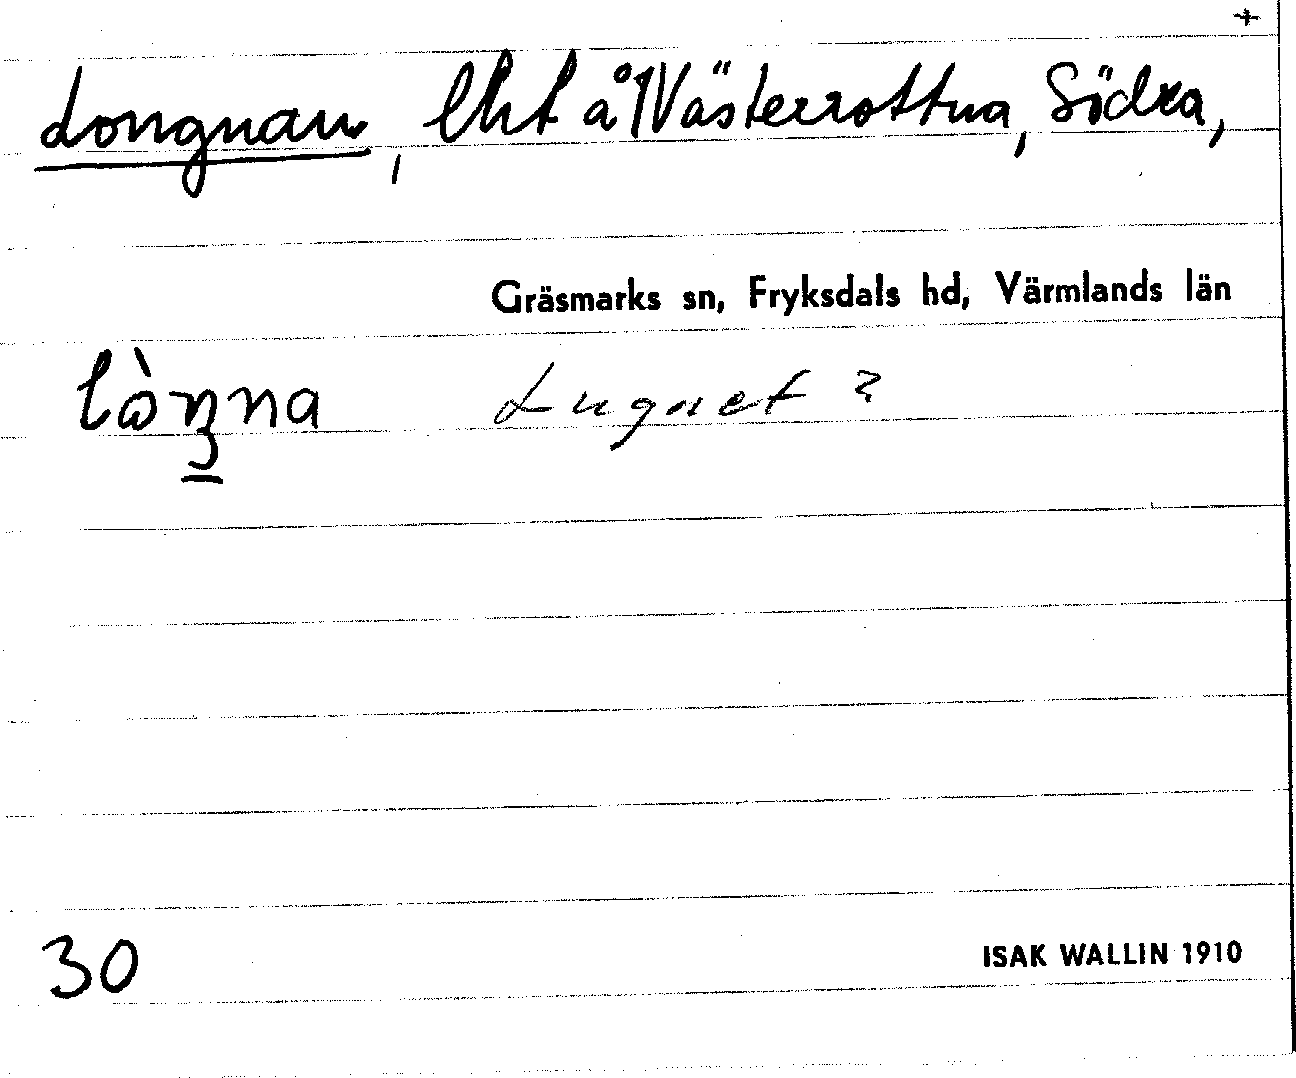 +
Longnan, lht å Västerrottna, Södra,
Gräsmarks sn, Fryksdals hd, Värmlands län
Lugnet ?
30
ISAK WALLIN 1910